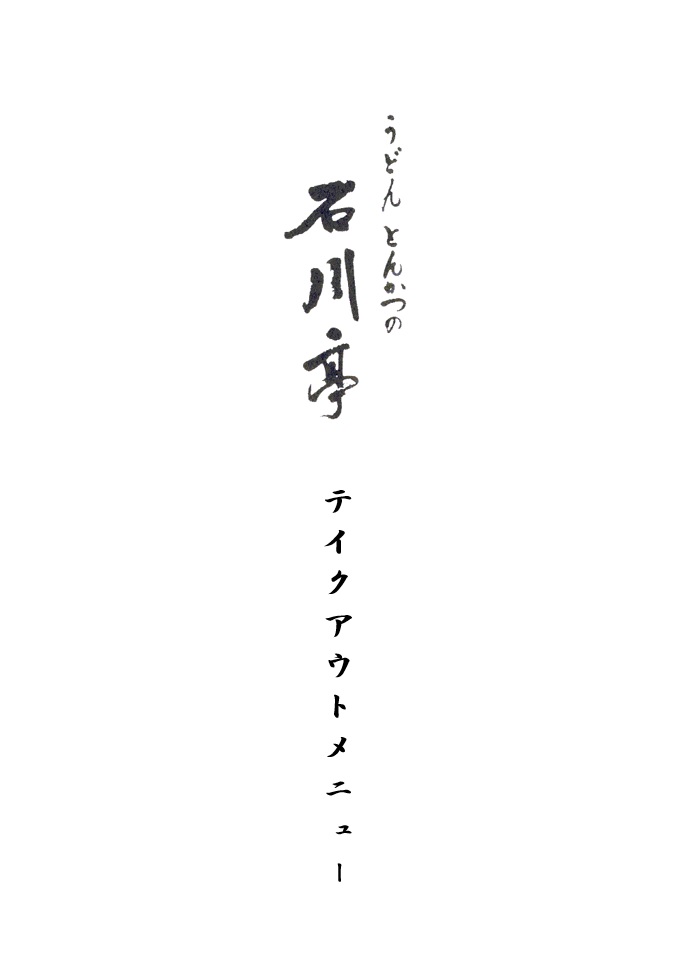 うどんとんかつの
石川亭
テイクアウトメニュー